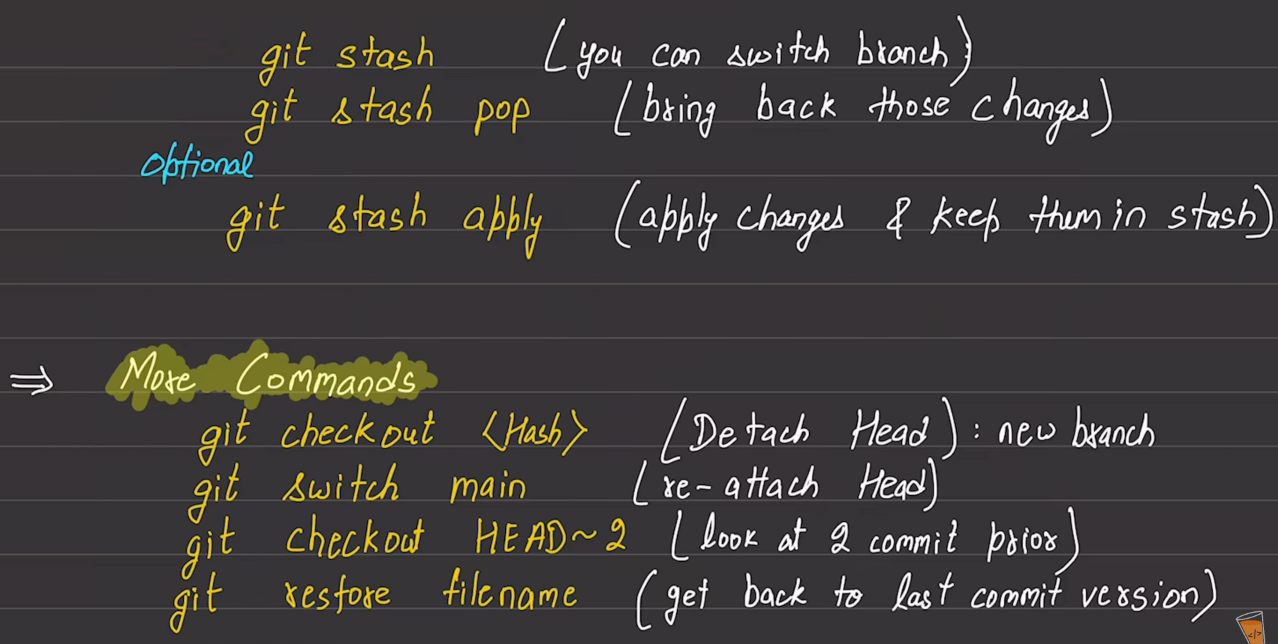 git stash (you can switch branch)
git stash pop (bring back those changes)
optional
git stash apply (apply changes & keep them in stash)
⇒ More Commands
git checkout <Hash> (Detach Head) : new branch
git switch main (re-attach Head)
git checkout HEAD~2 (look at 2 commit prior)
git restore filename (get back to last commit version)
</>